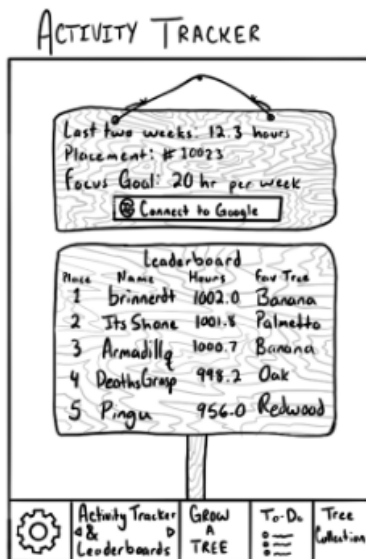 ACTIVITY TRACKER
Last two weeks: 12.3 hours
Placement: #10023
Focus Goal: 20 hr per week
Connect to Google
Leaderboard
Place Name Hours Fav Tree
1 brinnerdt 1002.0 Banana
2 ItsShane 1001.8 Palmetto
3 Armadillq 1000.7 Banana
4 DeathsGrasp 998.2 Oak
5 Pingu 956.0 Redwood
Activity Tracker
&
Leaderboards
GROW
A
TREE
To-Do
Tree
Collection